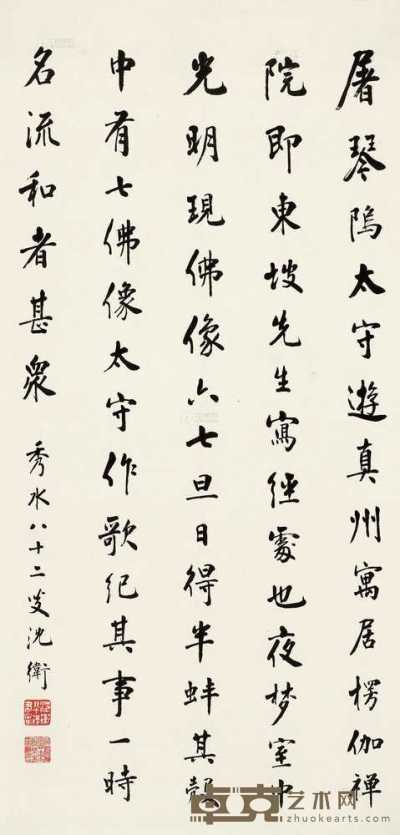 屠琴隖太守遊真州寓居楞伽禅
院即東坡先生寫經處也夜梦室中
光明現佛像六七旦日得半蚌其殼
中有七佛像太守作歌纪其事一時
名流和者甚衆
秀水八十二叟沈衛
卓克艺术网
www.zhuokearts.com